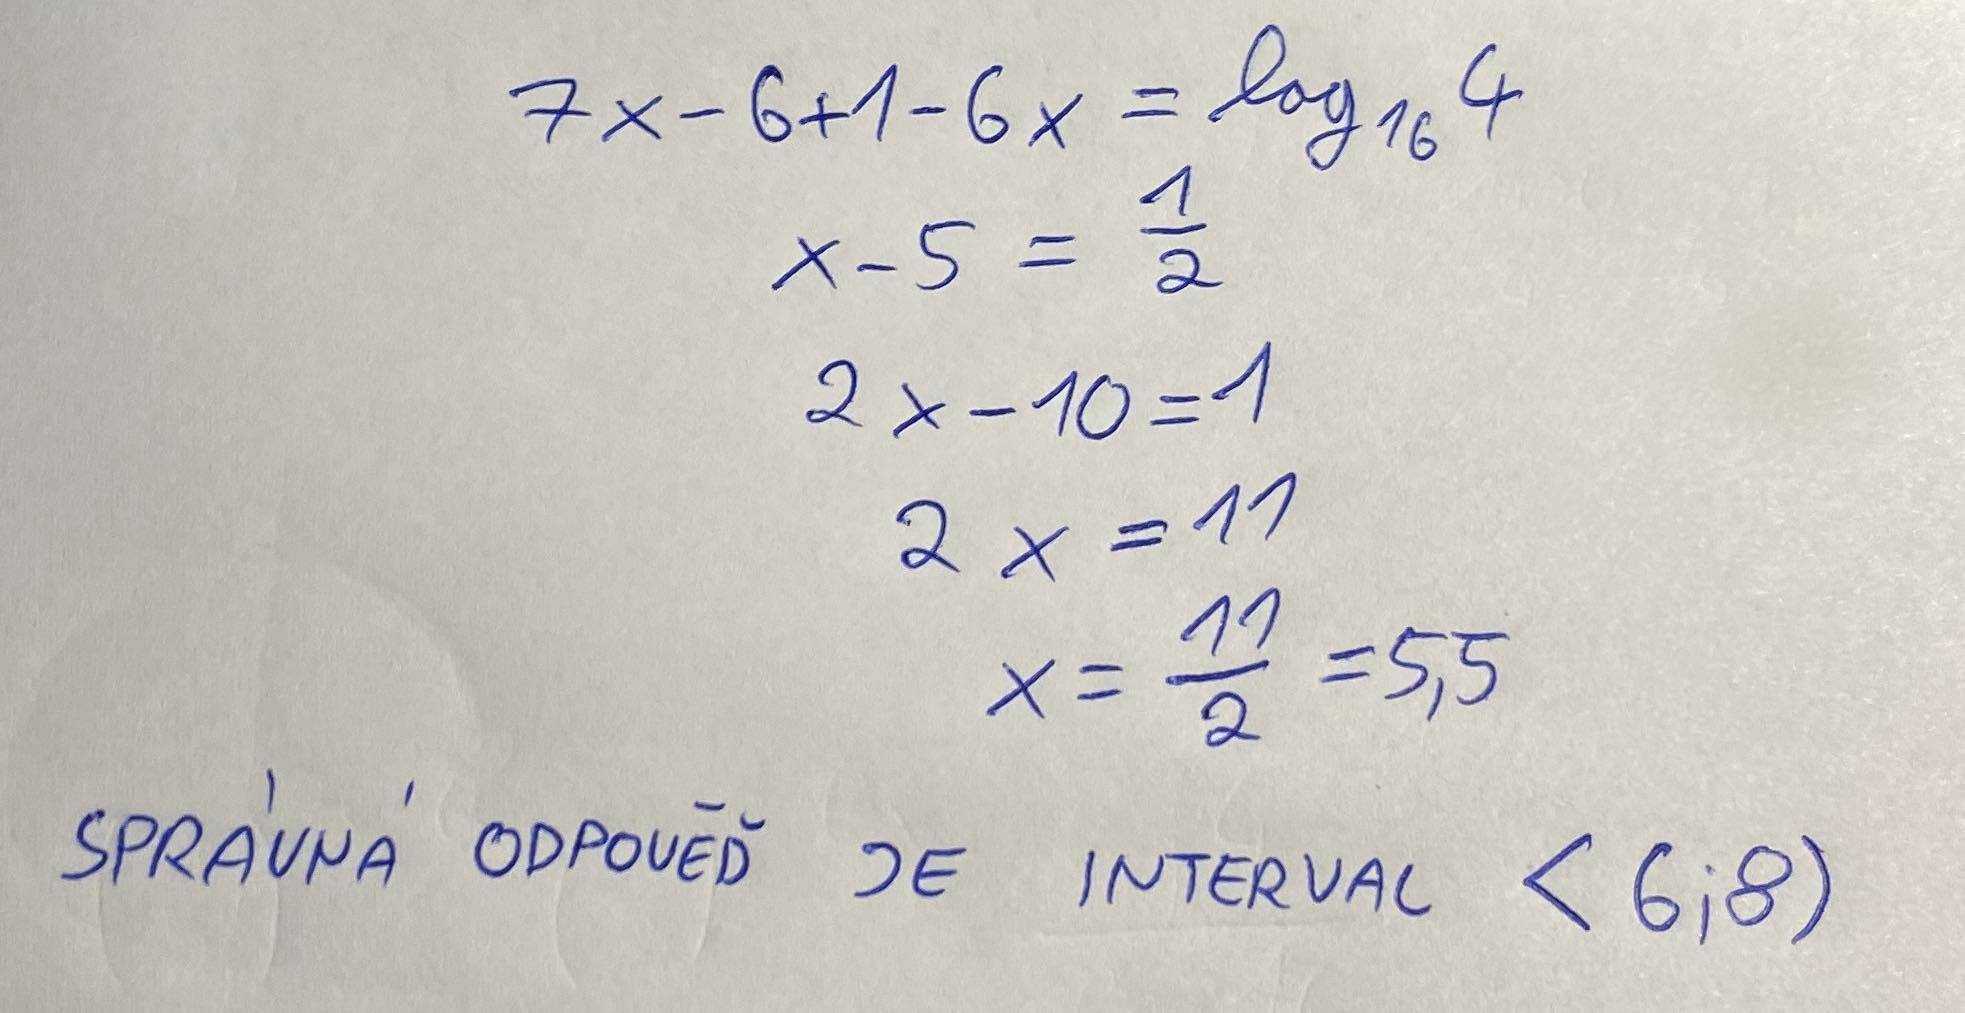 7x-6+1-6x = log₁₆4
x-5 = 1/2
2x-10=1
2x = 11
x = 11/2 = 5,5
SPRÁVNÁ ODPOVĚĎ JE INTERVAL <6;8)